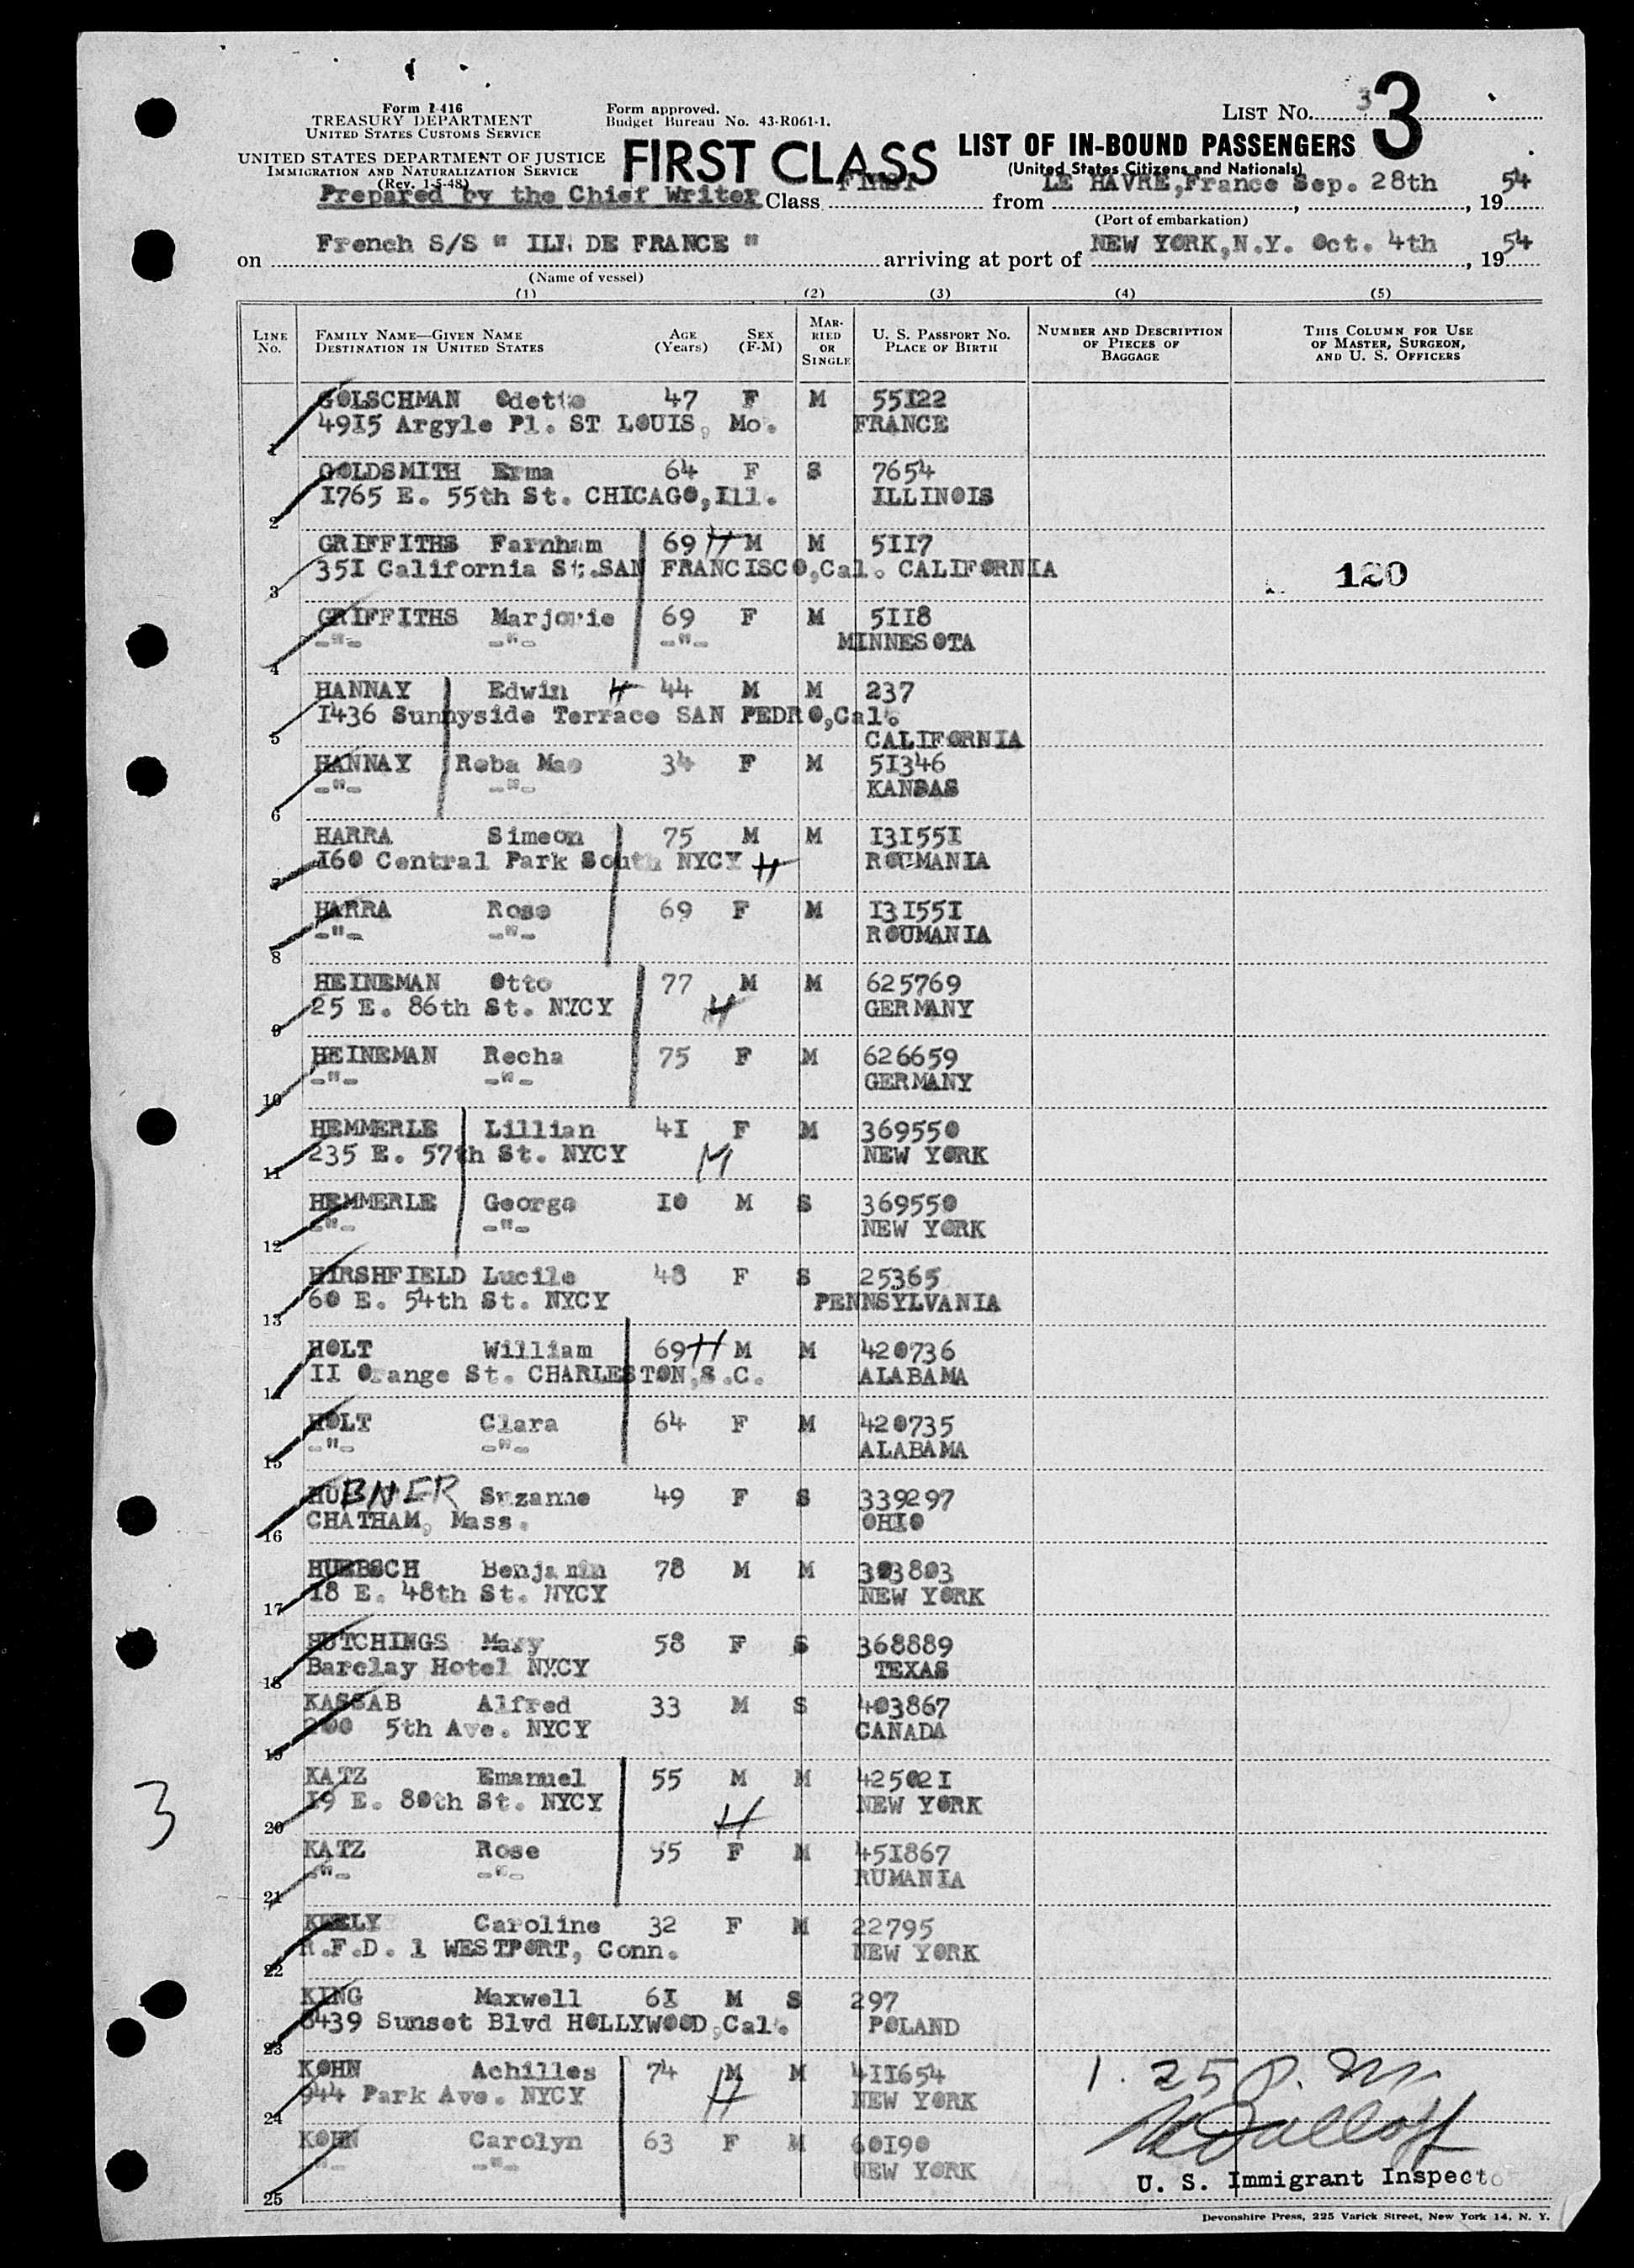 Form I-416
TREASURY DEPARTMENT
UNITED STATES CUSTOMS SERVICE
UNITED STATES DEPARTMENT OF JUSTICE
IMMIGRATION AND NATURALIZATION SERVICE
(Rev. 1-5-48)
Form approved.
Budget Bureau No. 43-R061-1.
LIST No. 3
3
FIRST CLASS
LIST OF IN-BOUND PASSENGERS
(United States Citizens and Nationals)
Prepared by the Chief Writer Class First from LE HAVRE,France Sep. 28th, 1954
(Port of embarkation)
on French S/S " ILE DE FRANCE " arriving at port of NEW YORK,N.Y. Oct. 4th, 1954
(Name of vessel)
(1) (2) (3) (4) (5)
LINE No. FAMILY NAME—GIVEN NAME DESTINATION IN UNITED STATES AGE (Years) SEX (F-M) MARRIED OR SINGLE U. S. PASSPORT No. PLACE OF BIRTH NUMBER AND DESCRIPTION OF PIECES OF BAGGAGE THIS COLUMN FOR USE OF MASTER, SURGEON, AND U. S. OFFICERS
GOLSCHMAN Odette 47 F M 55I22
1 49I5 Argyle Pl. ST LOUIS, Mo. FRANCE
GOLDSMITH Erma 64 F S 7654
2 I765 E. 55th St. CHICAGO,Ill. ILLINOIS
GRIFFITHS Farnham 69 H M M 5II7
3 35I California St.SAN FRANCISCO,Cal. CALIFORNIA 120
GRIFFITHS Marjorie 69 F M 5II8
4 -"- -"- -"- MINNESOTA
HANNAY Edwin H 44 M M 237
5 I436 Sunnyside Terrace SAN PEDRO,Cal.
CALIFORNIA
HANNAY Reba Mae 34 F M 5I346
6 -"- -"- KANSAS
HARRA Simeon 75 M M I3I55I
7 I60 Central Park South NYCY H ROUMANIA
HARRA Rose 69 F M I3I55I
8 -"- -"- ROUMANIA
HEINEMAN Otto 77 M M 625769
9 25 E. 86th St. NYCY H GERMANY
HEINEMAN Recha 75 F M 626659
10 -"- -"- GERMANY
HEMMERLE Lillian 4I F M 369550
11 235 E. 57th St. NYCY M NEW YORK
HEMMERLE George I0 M S 369550
12 -"- -"- NEW YORK
HIRSHFIELD Lucile 48 F S 25365
13 60 E. 54th St. NYCY PENNSYLVANIA
HOLT William 69 H M M 420736
14 II Orange St. CHARLESTON,S.C. ALABAMA
HOLT Clara 64 F M 420735
15 -"- -"- ALABAMA
HUBNER Suzanne 49 F S 339297
16 CHATHAM, Mass. OHIO
HUEBSCH Benjamin 78 M M 303803
17 I8 E. 48th St. NYCY NEW YORK
HUTCHINGS Mary 58 F S 368889
18 Barclay Hotel NYCY TEXAS
KASSAB Alfred 33 M S 403867
19 200 5th Ave. NYCY CANADA
KATZ Emanuel 55 M M 42502I
20 I9 E. 80th St. NYCY H NEW YORK
KATZ Rose 55 F M 45I867
21 -"- -"- RUMANIA
KEELY Caroline 32 F M 22795
22 R.F.D. 1 WESTPORT, Conn. NEW YORK
KING Maxwell 6I M S 297
23 8439 Sunset Blvd HOLLYWOOD,Cal. POLAND
KOHN Achilles 74 M M 4II654
24 944 Park Ave. NYCY H NEW YORK
KOHN Carolyn 63 F M 60I90
25 -"- -"- NEW YORK
3
1.25 P.M.
U. S. Immigrant Inspector
Devonshire Press, 225 Varick Street, New York 14, N. Y.